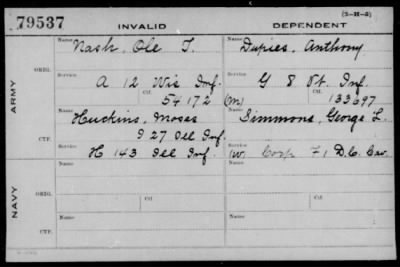 79537
(3-H-8)
INVALID DEPENDENT
Name Nash, Ole T. Name Dupies, Anthony
ORIG.
Service A 12 Wis Inf. Service G 8 Vt. Inf.
Ctf. 54172 (M) Ctf. 133697
ARMY
Name Huckins, Moses Name Simmons, George L.
CTF. I 27 Ill Inf.
Service H 143 Ill Inf. Service (W. Corp F 1 D.C. Cav.
Name Ctf. Name Ctf.
ORIG.
NAVY
Name Name
CTF.